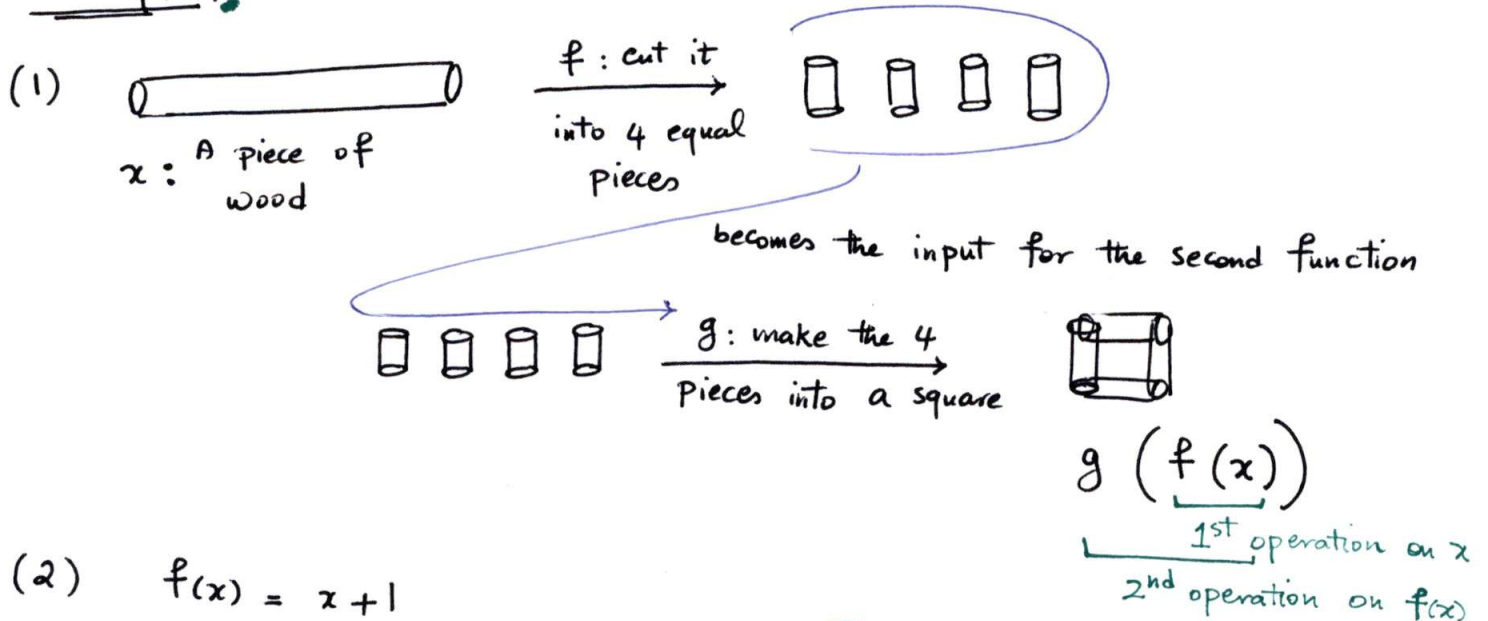 (1)
f : cut it
into 4 equal
pieces
x : A piece of
wood
becomes the input for the second function
g : make the 4
pieces into a square
g (f(x))
1st operation on x
2nd operation on f(x)
(2) f(x) = x + 1